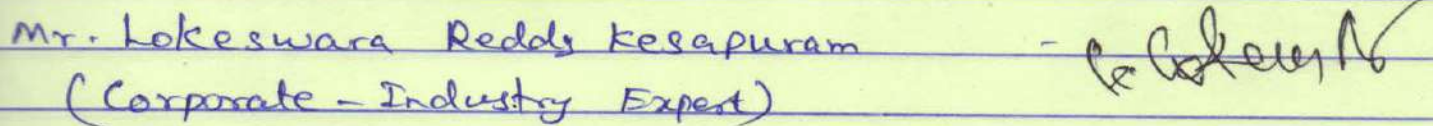 Mr. Lokeswara Reddy Kesapuram -
(Corporate - Industry Expert)